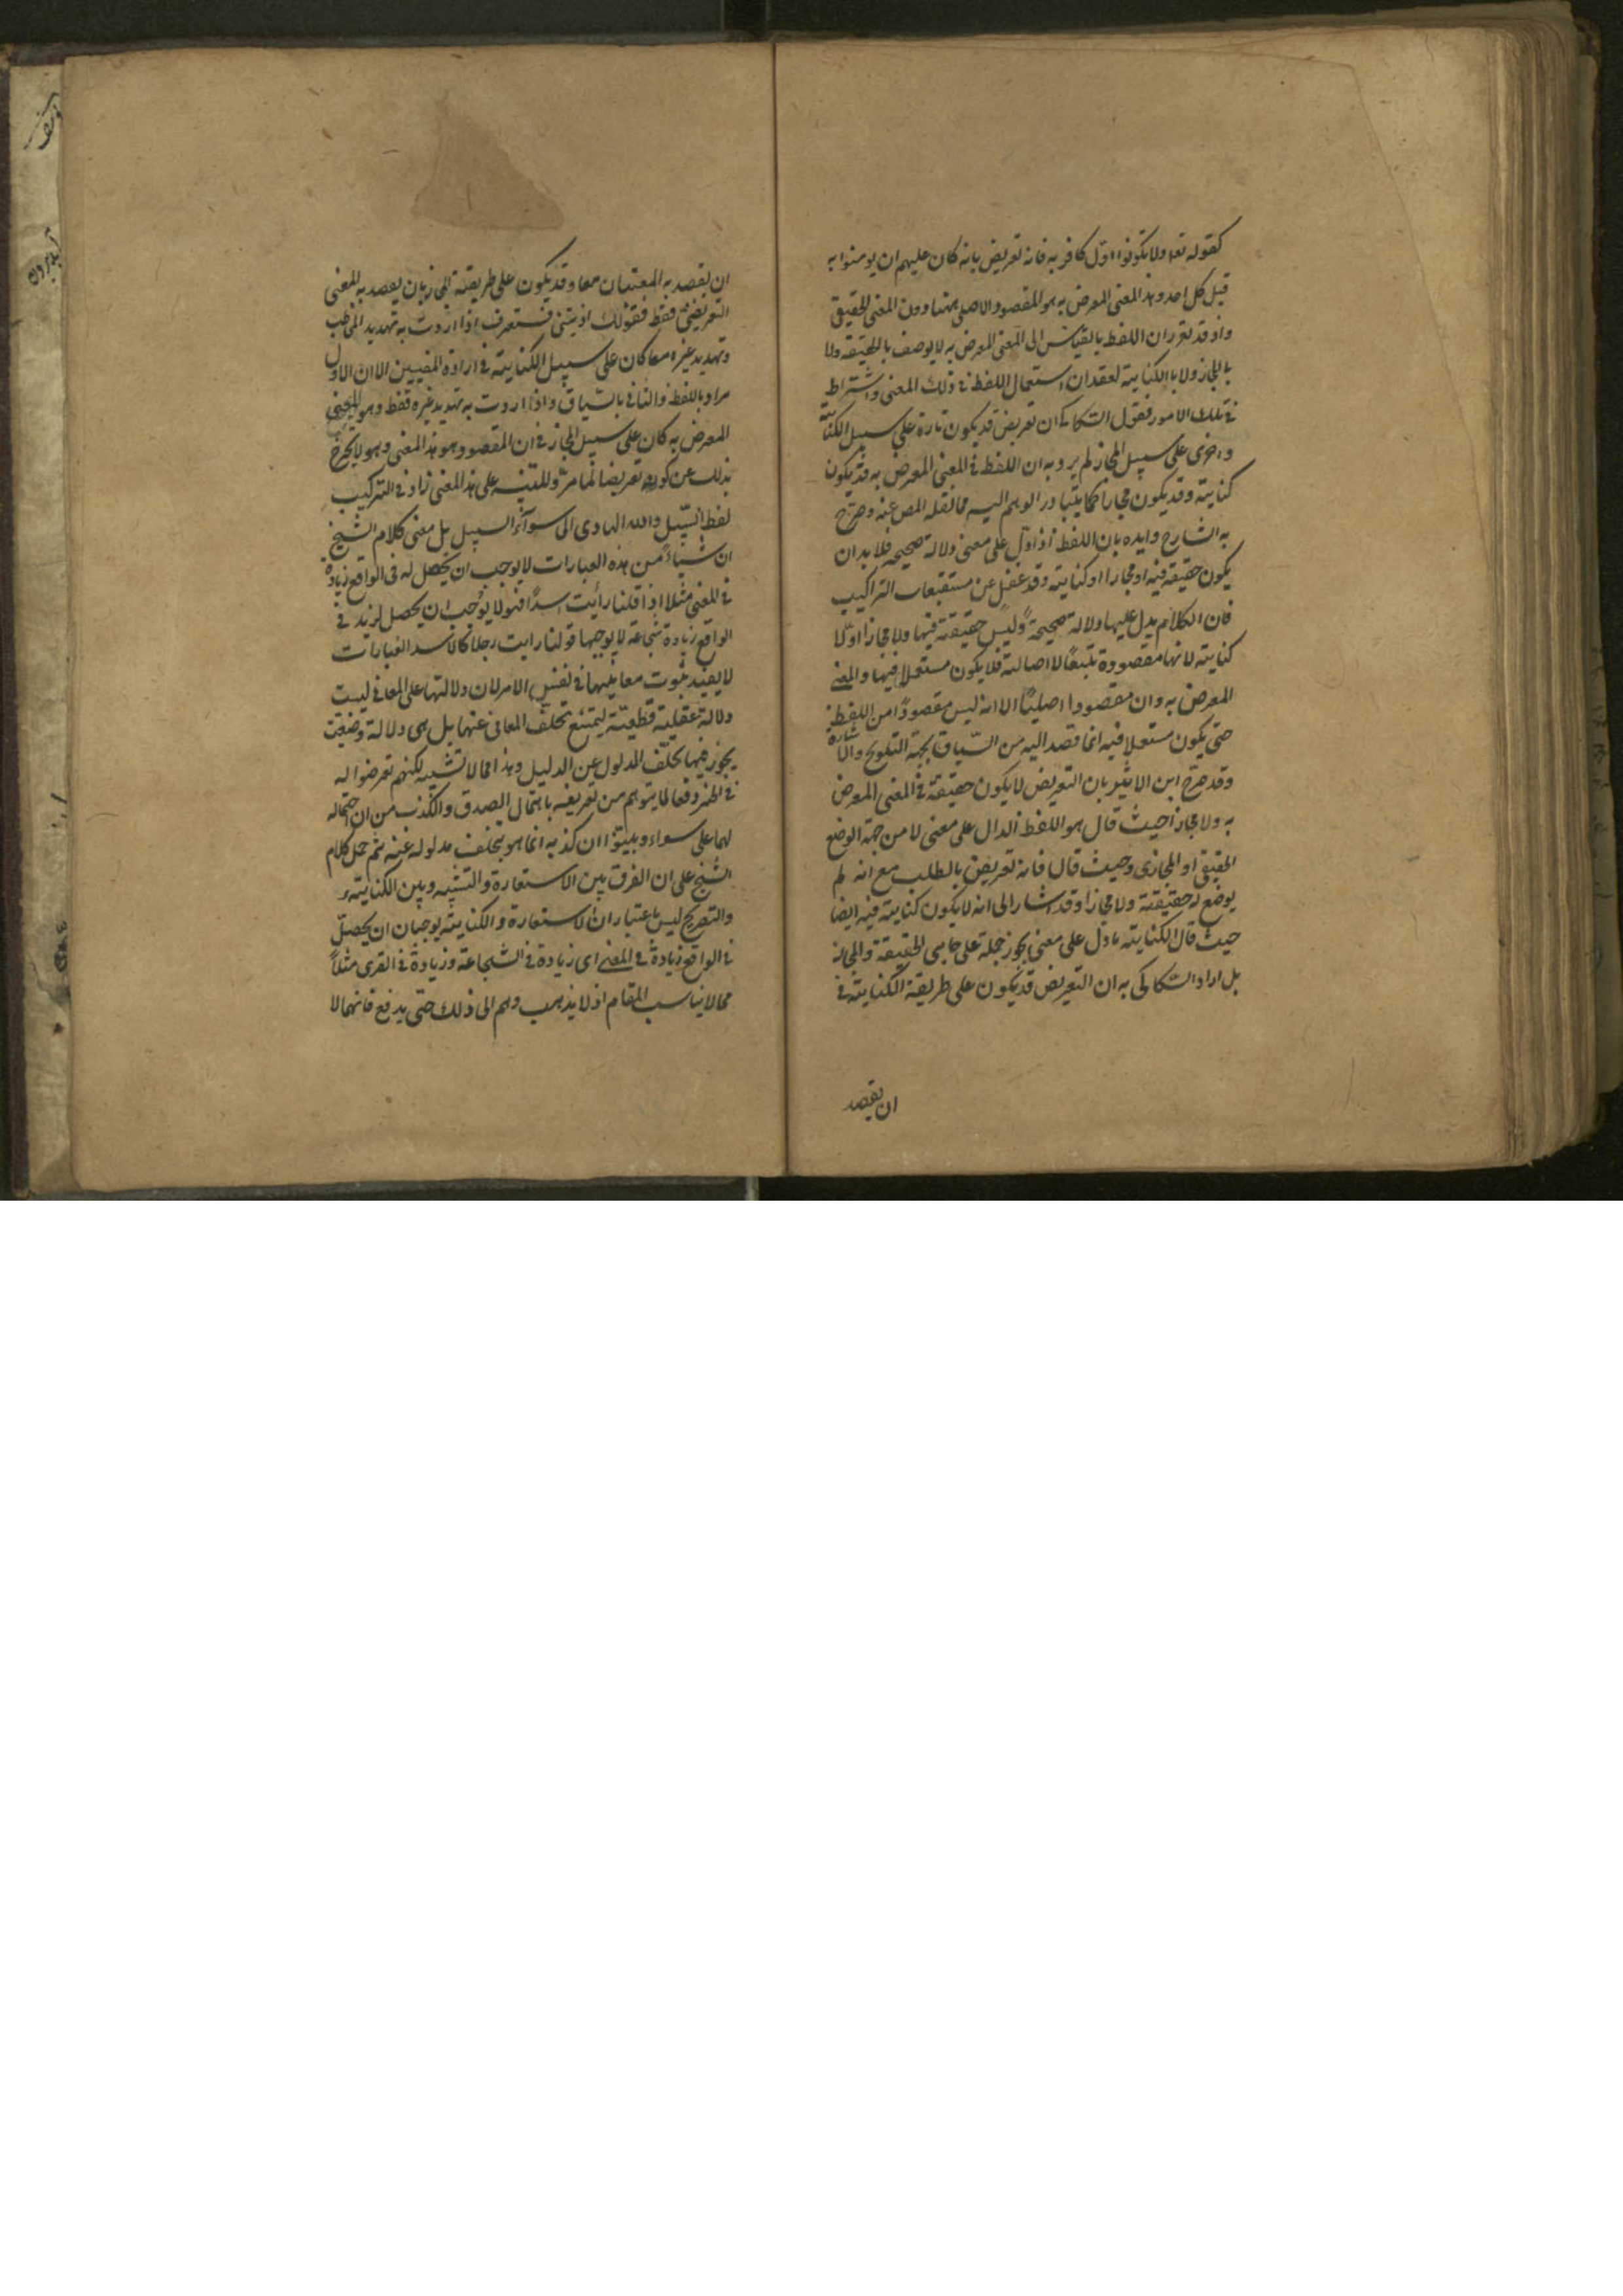 كقوله تعا ولا تكونوا اوّل كافر به فانه تعريض بانه كان عليهم ان يومنوا به
قبل كل احد وهذا المعنى المعرض به هو المقصود الاصلى ههنا دون المعنى الحقيقى
واذ قد تقرر ان اللفظ بالقياس الى المعنى المعرض به لا يوصف بالحقيقه ولا
بالمجاز ولا بالكناية لفقدان استعمال اللفظ فى ذلك المعنى واشتراط
فى تلك الامور فقول السكاكى ان تعريض قد يكون تارة على سبيل الكناية
واخرى على سبيل المجاز لم يرد به ان اللفظ فى المعنى المعرض به قد يكون
كناية وقد يكون مجازا كما يتبادر الوهم اليه مما نقله المص عنه وصرّح
به الشارح وايده بان اللفظ اذا دلّ على معنى دلالة صحيحة فلا بد ان
يكون حقيقة فيه او مجازا او كناية وقد غفل عن مستتبعات التراكيب
فان الكلام يدل عليها دلالة صحيحةً وليس حقيقة فيها ولا مجازا ولا
كناية لانها مقصودة تبعًا لا اصالة فلا يكون مستعملا فيها والمعنى
المعرض به وان مقصودا اصليًا الا انه ليس مقصودًا من اللفظ
حتى يكون مستعملا فيه انما قصد اليه من السّياق بجهة التلويح والاشارة
وقد صرّح ابن الاثير بان التعريض لا يكون حقيقة فى المعنى المعرض
به ولا مجازا حيث قال هو اللفظ الدال على معنى لا من جهة الوضع
الحقيقى او المجازى وحيث قال فانه تعريض بالطلب مع انه لم
يوضع له حقيقة ولا مجازا وقد اشار الى انه لا يكون كناية فيه ايضا
حيث قال الكناية ما دل على معنى يجوز حمله على جانبى الحقيقة والمجاز
بل اراد السكاكى به ان التعريض قد يكون على طريقة الكناية فى
ان يقصد
ان يقصد به المعنيان معا وقد يكون على طريقة المجاز بان يقصد به المعنى
التعريضى فقط فقولك اذيتنى فستعرف اذا اردت به تهديد المخاطب
وتهديد غيره معا كان على سبيل الكناية فى ارادة المعنيين الا ان الاول
مراد باللفظ والثانى بالسّياق واذا اردت به تهديد غيره فقط وهو المعنى
المعرض به كان على سبيل المجاز فى ان المقصود هو هذا المعنى وهو لا يخرج
بذلك عن كونه تعريضا لما مرّ وللتنبيه على هذا المعنى زاد فى التركيب
لفظ السّبيل والله الهادى الى سوآء السبيل بل معنى كلام الشيخ
ان شيئاً من هذه العبارات لا يوجب ان يحصل له فى الواقع زيادة
فى المعنى مثلا اذا قلنا رأيت اسدًا فهو لا يوجب ان يحصل لزيد فى
الواقع زيادة شجاعة لا يوجبها قولنا رايت رجلا كالاسد العبارات
لا يفيد ثبوت معانيها فى نفس الامر لان دلالتها على المعانى ليست
دلالة عقلية قطعيّة ليمتنع تخلّف المعانى عنها بل هى دلالة وضعية
يجوز فيها تخلّف المدلول عن الدليل وهذا مما لا تشبيه لكنهم تعرضوا له
فى الخبر دفعا لما يتوهم من تعريفه باحتمال الصدق والكذب من ان احتماله
لهما على سواء وبينوا ان كذبه انما هو بتخلف مدلوله عنه ثم حمل كلام
الشيخ على ان الفرق بين الاستعارة والتشبيه وبين الكناية
والتصريح ليس باعتبار ان الاستعارة والكناية يوجبان ان يحصل
فى الواقع زيادةً فى المعنى اى زيادة فى الشجاعة وزيادة فى القرى مثلاً
مما لا يناسب المقام اذ لا يذهب وهم الى ذلك حتى يدفع فانهما لا